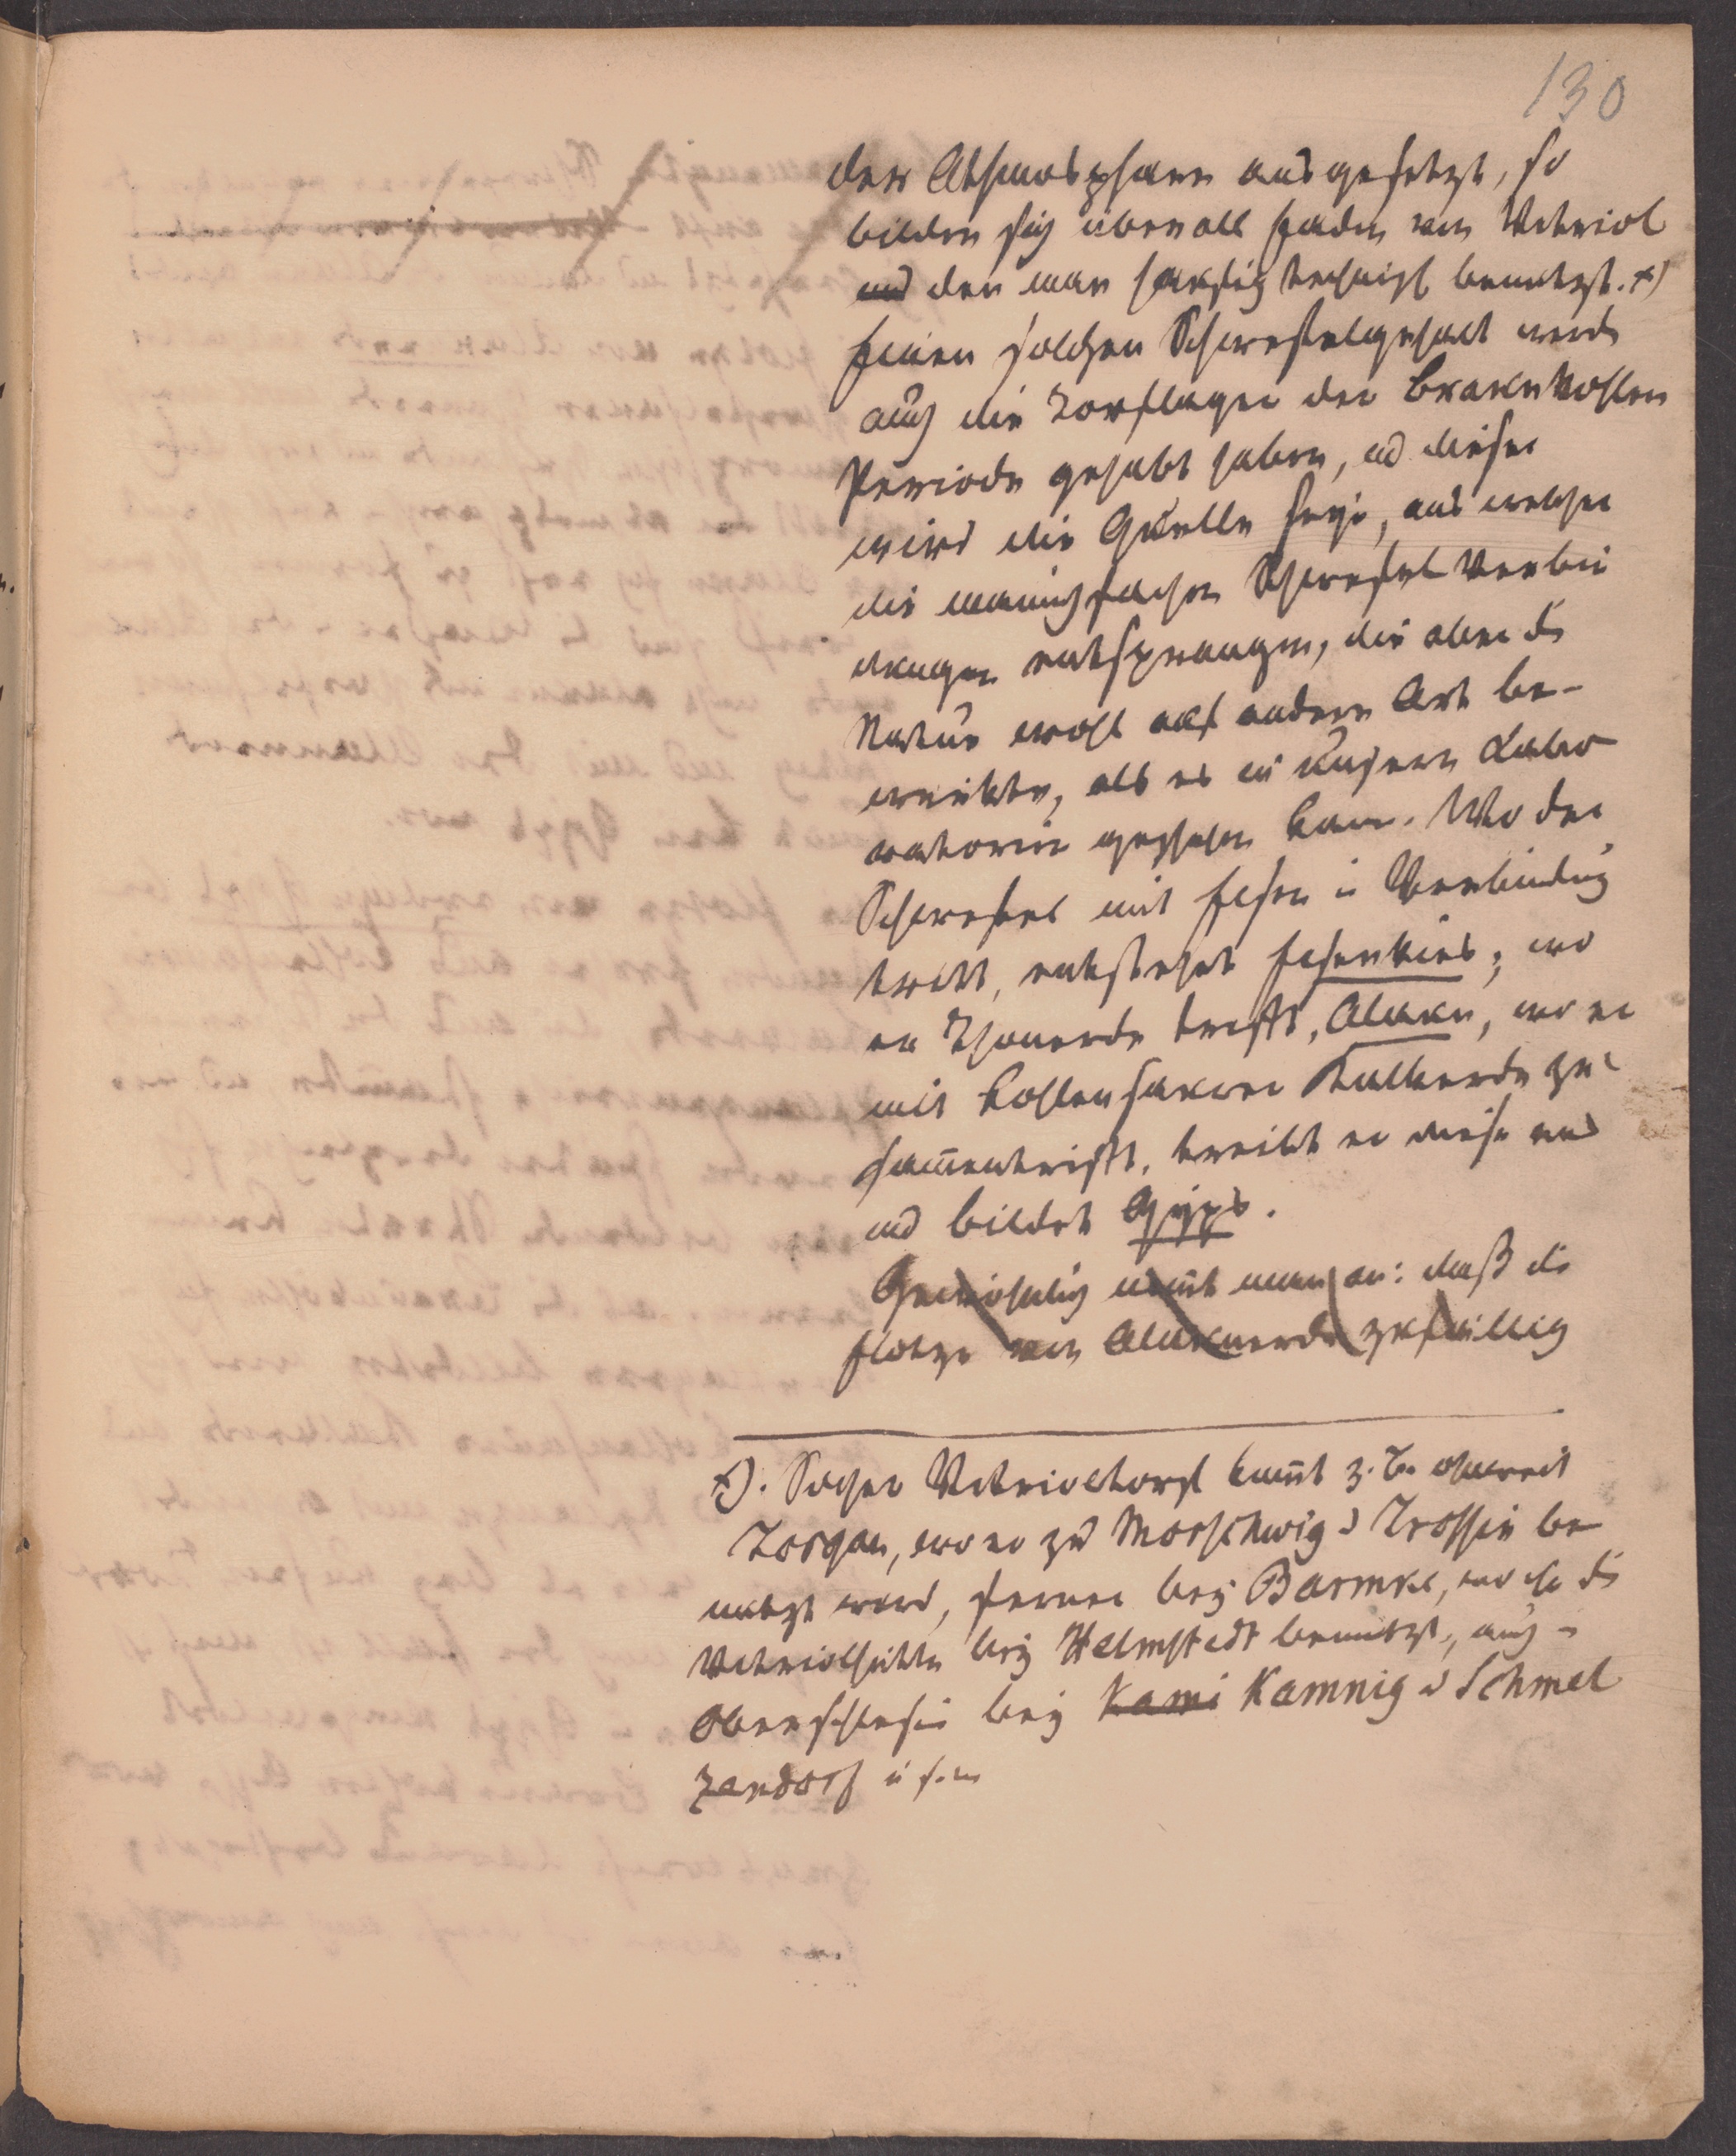 130
der Athmosphäre ausgesetzt, so
bilden sich überall Faden von Vitriol
und den man häufig technisch benutzt. ×)
Einen solchen Schwefelgehalt werden
auch die Torflager der Braunkohlen
Periode gehabt haben, und dieser
wird die Quelle seyn, aus welcher
die mannichfachen Schwefel Verbin
dungen entsprangen, die aber die
Natur wohl auf andere Art be-
wirkte, als es in unsern Labo
ratorien geschehen kann. Wo der
Schwefel mit Eisen in Verbindung
tritt, entsteht Eisenkies; wo
er Thonerde trifft, Alaun, wo er
mit kohlensaurer Kalkerde zu-
sam̄entrifft, treibt er diese aus
und bildet Gyps.
Gewöhnlich nim̄t man an: daß die
Flötze von Alaunerde zufällig
×). Solcher Vitrioltorf kom̄t z. B. ohnweit
Torgau, wo er zu Morschwig u Trossin be
nutzt wird, ferner bey Barmke, wo ihn die
Vitriolhütte bey Helmstedt benutzt, auch in
Oberschlesien bey Kami Kamnig u Schmel
zendorf u s. w